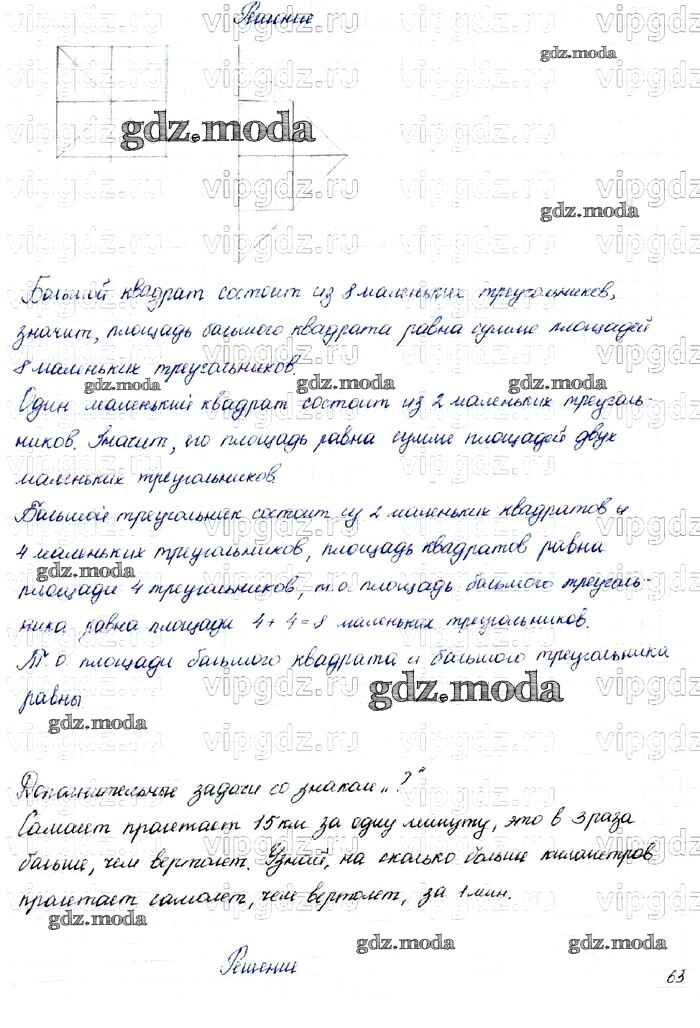 Решение
Большой квадрат состоит из 8 маленьких треугольников,
значит, площадь большого квадрата равна сумме площадей
8 маленьких треугольников.
Один маленький квадрат состоит из 2 маленьких треуголь-
ников. Значит, его площадь равна сумме площадей двух
маленьких треугольников.
Большой треугольник состоит из 2 маленьких квадратов и
4 маленьких треугольников, площадь квадратов равна
площади 4 треугольников, т.о. площадь большого треуголь-
ника равна площади 4+4=8 маленьких треугольников.
Т.о площади большого квадрата и большого треугольника
равны
Дополнительные задачи со знаком „?"
Самолет пролетает 15 км за одну минуту, это в 3 раза
больше, чем вертолет. Узнай, на сколько больше километров
пролетает самолет, чем вертолет, за 1 мин.
Решение
63
gdz.moda
vipgdz.ru